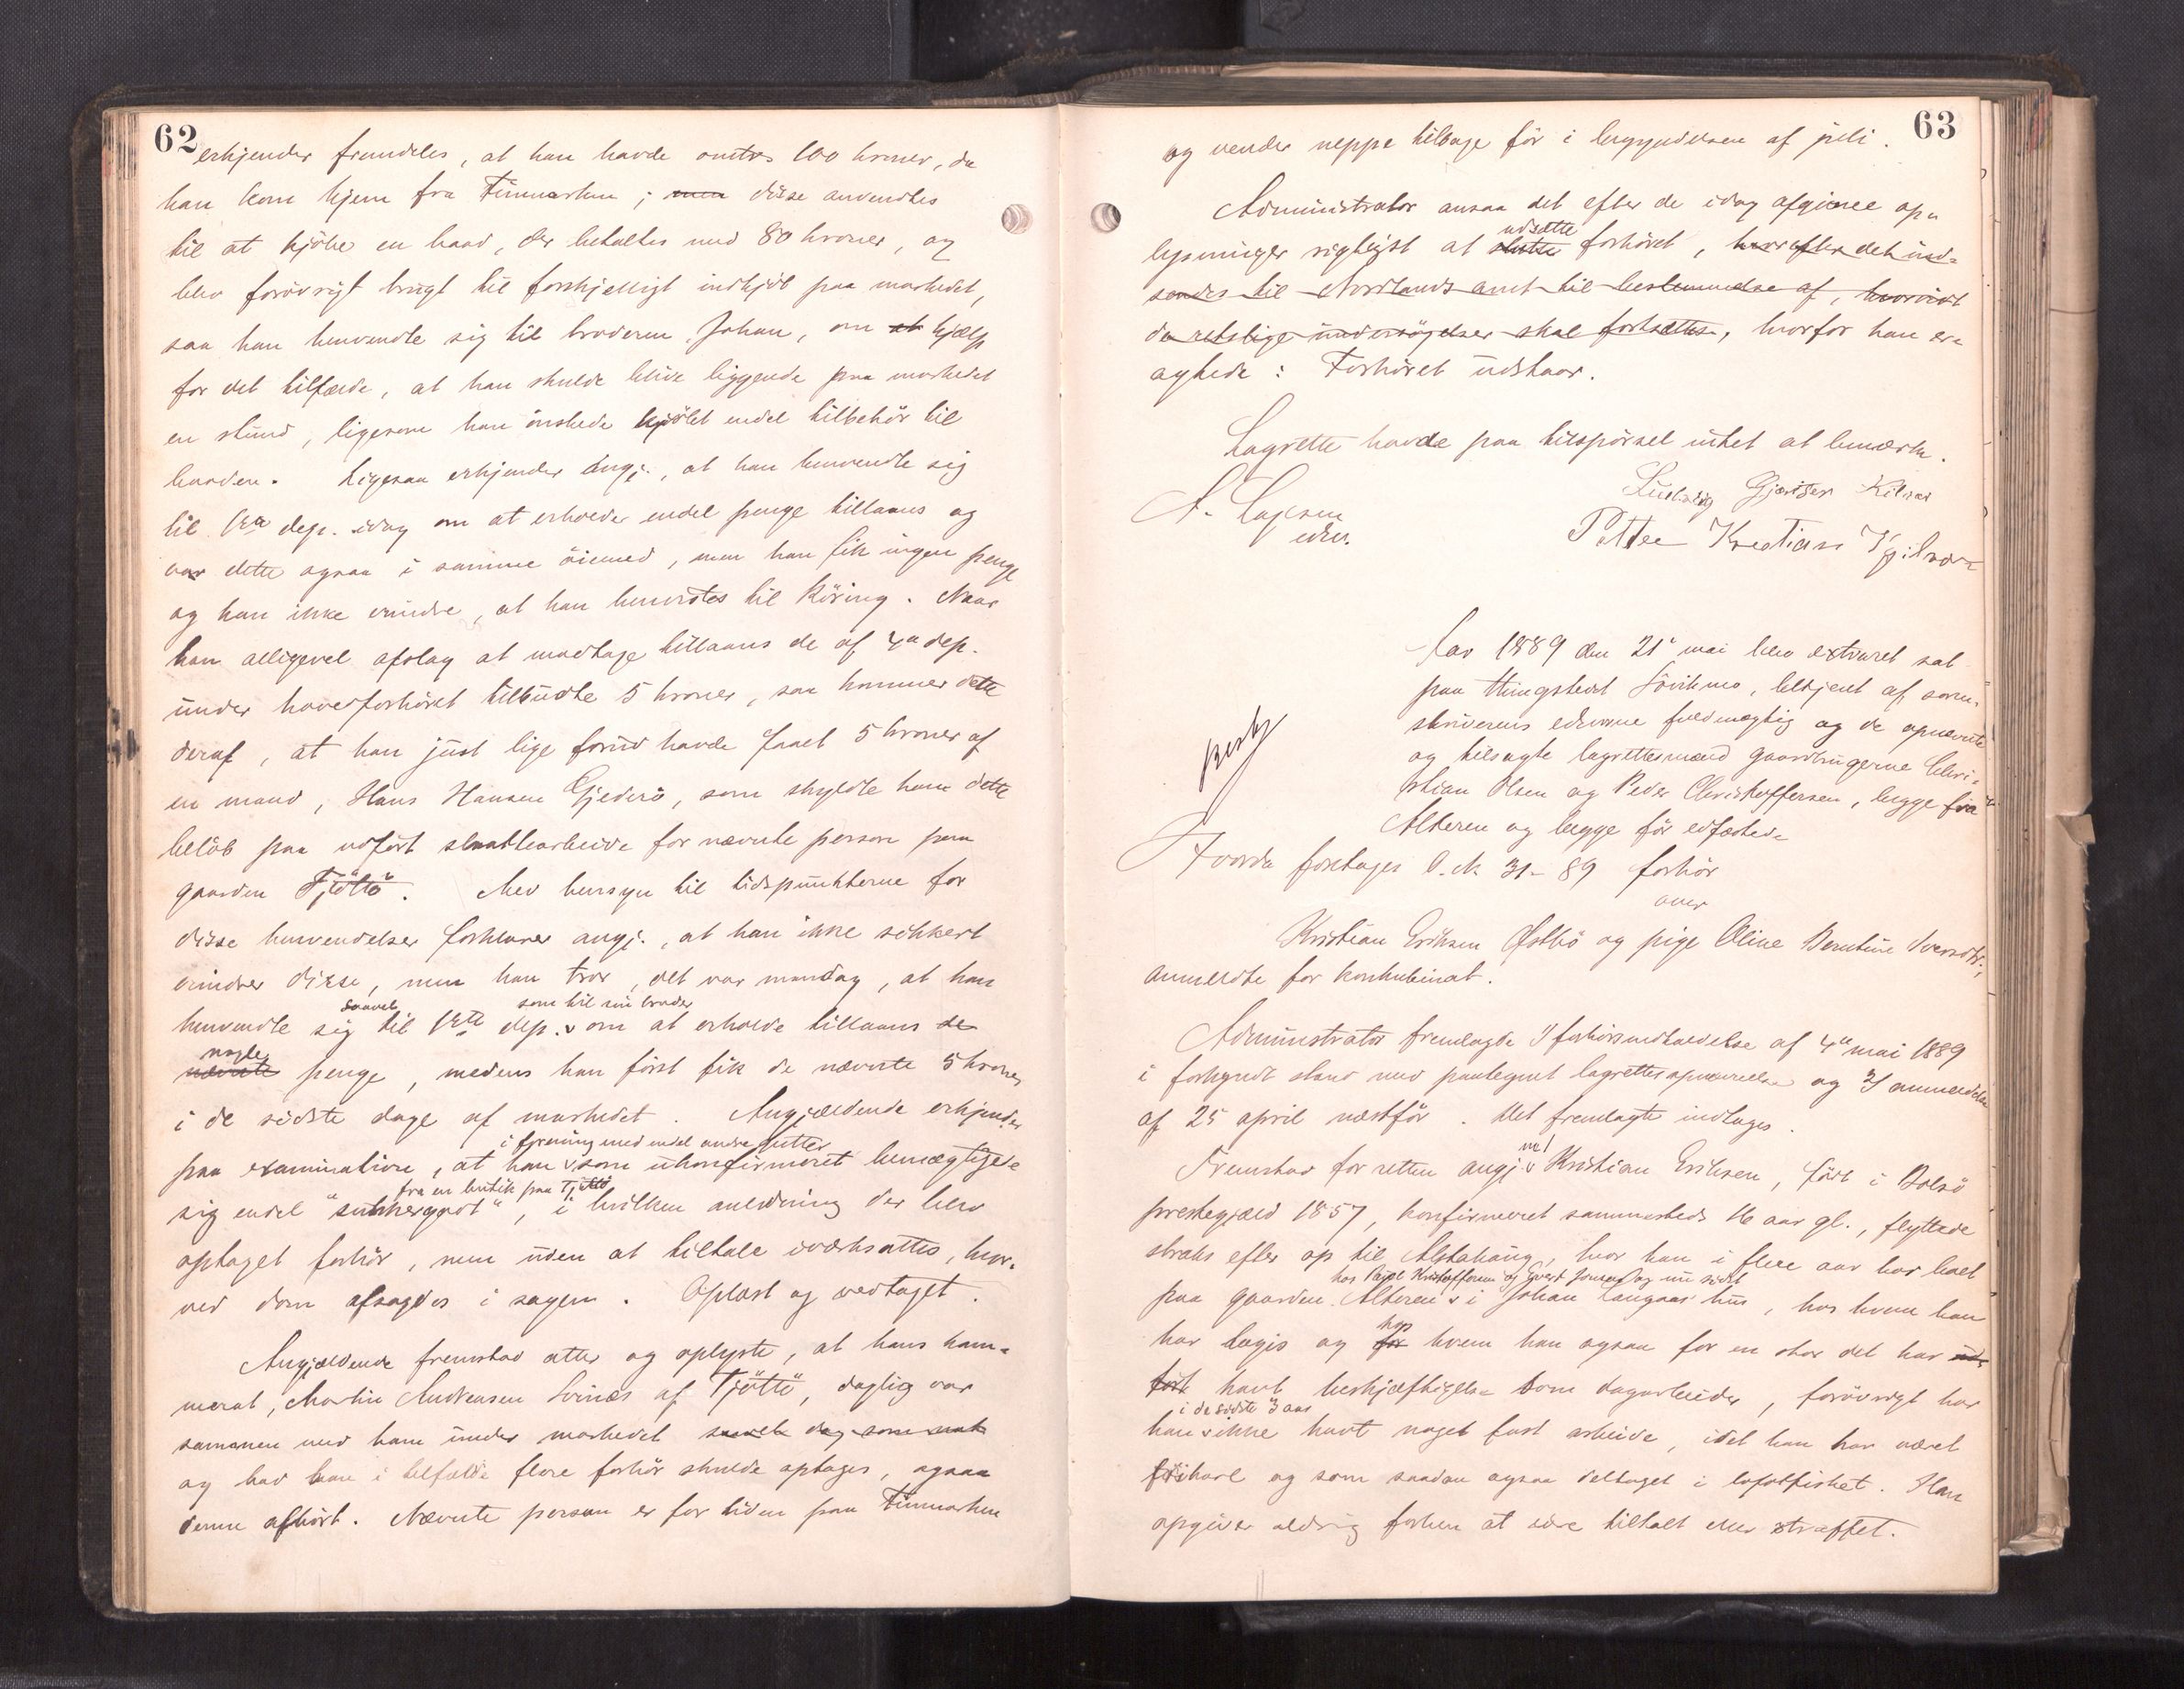 62
erkjender fremdeles, at han havde omtrs 100 kroner, da
han kom hjem fra Finmarken; men disse anvendtes
til at kjöbe en baad, der betaltes med 80 kroner, og
blev forövrigt brugt til forskjelligt indkjöb paa markedet,
saa han henvendte sig til broderen Johan, om at hjælp
for det tilfælde, at han skulde blive liggende paa markedet
en stund, ligesom han önskede kjöbt endel tilbehör til
baaden. Ligesaa erkjender angj., at han henvendte sig
til dep. idag om at erholde endel penge tillaans og
var dette ogsaa i samme öiemed, men han fik ingen penge
og kan ikke erindre, at han henvistes til Röring. Naar
han alligevel afslog at modtage tillaans de af 4de dep.
under hovedforhöret tilbudte 5 kroner, saa kommer dette
deraf, at han just lige forud havde faaet 5 kroner af
en mand, Hans Hansen Gjederö, som skyldte ham dette
belöb paa udfört slaattearbeide for nævnte person paa
gaarden Tjöttö. Med hensyn til tidspunkterne for
disse henvendelser forklarer angj., at han ikke sikkert
erindrer disse, men han tror, det var mandag, at han
saavel som til sin broder
henvendte sig til dep. v om at erholde tillaans de
nogle
nævnte penge, medens han först fik de nævnte 5 kroner
i de sidste dage af markedet. Angjældende erkjender
i forening med endel andre gutter
paa examination, at han v som ukonfirmeret bemægtigede
fra en butik paa Tjöttö
sig endel "sukkergodt", i hvilken anledning der blev
optaget forhör, men uden at tiltale iværksattes, hvor-
ved dom afsagdes i sagen. Oplæst og vedtaget.
Angjældende fremstod atter og oplyste, at hans kam-
merat, Martin Andreasen Svinæs af Tjöttö, daglig var
sammen med ham under markedet saavel dag som nat
og bad han i tilfælde flere forhör skulde optages, ogsaa
denne afhört. Nævnte person er for tiden paa Finmarken
63
og vender neppe tilbage för i begyndelsen af juli.
Administrator ansaa det efter de idag afgivne op-
udsætte
lysninger rigtigst at slutte forhöret, hvorefter det ind-
sendes til Nordlands amt til bestemmelse af, hvorvidt
de retslige undersögelser skal fortsættes, hvorfor han er-
agtede: Forhöret udstaar.
Lagrette havde paa tilspörsel intet at bemærke.
Ludvig Gjærtsen Kilvær
A. Caspersen
edsv.
Petter Kristian Kilvær
Aar 1889 den 21de mai blev extraret sat
paa thingstedet Sövikmo, betjent af soren-
skriverens edsvorne fuldmægtig og de opnævnte
og tilsagte lagrettesmænd gaardbrugerne Chri-
stian Olsen og Peder Christoffersen, begge fra
Alteren og begge för edfæstede
Hvorda foretoges O. N. 31-89 forhör
over
Kristian Eriksen Östbö og pige Oline Berntine Iversdtr.,
anmeldte for konkubinat.
Administrator fremlagde 1) forhörsindkaldelse af 4de mai 1889
i forkyndt stand med paategnet lagrettesopnævnelse og 2) anmeldelse
af 25 april næstför. Det fremlagte indtages.
no 1
Fremstod for retten angj. v Kristian Eriksen, födt i Bolsö
prestegjæld 1857, konfirmeret sammesteds 16 aar gl., flyttede
straks efter op til Alstahaug, hvor han i flere aar har boet
hos Paul Kristoffersen og Evert Jonsen og nu sidst
paa gaarden Alteren v i Johan Langaas' hus, hos hvem han
hos
har logis og for hvem han ogsaa for en stor del har ud-
fört havt beskjæftigelse som dagarbeider, forövrigt har
i de sidste 3 aar
han v ikke havt noget fast arbeide, idet han har været
frikarl og som saadan ogsaa deltaget i lofotfisket. Han
opgiver aldrig forhen at være tiltalt eller straffet.